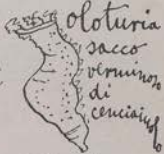 oloturia
sacco
verminoso
di
cenciaiuolo